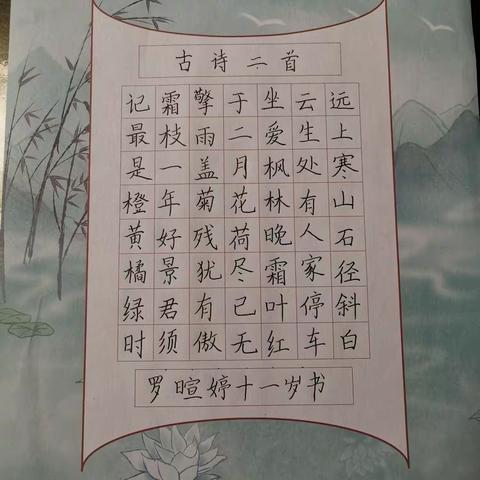 古诗二首
远上寒山石径斜白
云生处有人家停车
坐爱枫林晚霜叶红
于二月花荷尽已无
擎雨盖菊残犹有傲
霜枝一年好景君须
记最是橙黄橘绿时
罗暄婷十一岁书